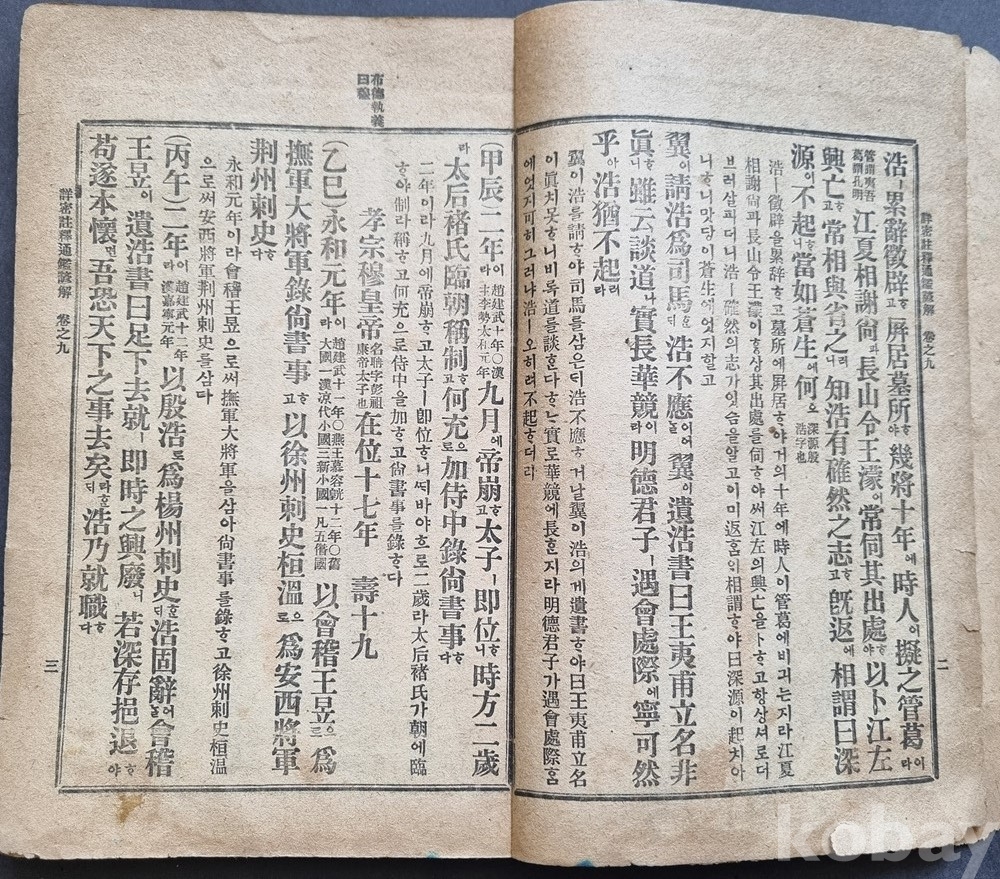 詳密註釋通鑑諺解 卷之九
二
浩ㅣ累辭徵辟고ᄒᆞ 屛居墓所야ᄒᆞ 幾將十年에 時人이 擬之管葛이라
管謂夷吾
葛謂孔明
江夏相謝尙과 長山令王濛이 常伺其出處야ᄒᆞ 以卜江左
興亡고ᄒᆞ 常相與省之러니 知浩有確然之志고ᄒᆞ 旣返에 相謂曰深
源이 不起니ᄒᆞ 當如蒼生에 何오
深源殷
浩字也
浩ㅣ徵辟을累辭ᄒᆞ고墓所에屛居ᄒᆞ야거의十年에時人이管葛에비기는지라江夏
相謝尙과長山令王濛이ᄒᆞᆼ상其出處를伺ᄒᆞ야ᄡᅥ江左의興亡을卜ᄒᆞ고항상셔로더
브러살피더니浩ㅣ確然의志가잇슴을알고이미返ᄒᆞᆷ의相謂ᄒᆞ야曰深源이起치아
니ᄒᆞ니맛당이蒼生에엇지ᄒᆞᆯ고
翼이 請浩爲司馬ᄃᆡ 浩不應이어ᄂᆞᆯ 翼이 遺浩書曰王夷甫立名非
眞니ᄒᆞ 雖云談道나 實長華競이라 明德君子ㅣ遇會處際에 寧可然
乎아 浩猶不起러라
翼이浩를請ᄒᆞ야司馬를삼은ᄃᆡ浩不應ᄒᆞ거날翼이浩의게遺書ᄒᆞ야曰王夷甫立名
이眞치못ᄒᆞ니비록道를談ᄒᆞᆫ다ᄒᆞ는實로華競에長ᄒᆞᆫ지라明德君子가遇會處際ᄒᆞᆷ
에엇지可히그러냐浩ㅣ오히려不起ᄒᆞ더라
(甲辰)二年이라
趙建武十年○漢
主李勢太和元年
九月에 帝崩고ᄒᆞ 太子ㅣ卽位니ᄒᆞ 時方二歲
라 太后褚氏臨朝稱制고ᄒᆞ 何充로으 加侍中錄尙書事다ᄒᆞ
二年이라九月에帝崩ᄒᆞ고太子ㅣ卽位ᄒᆞ니ᄯᅢ바야ᄒᆞ로二歲라太后褚氏가朝에臨
ᄒᆞ야制라稱ᄒᆞ고何充으로侍中을加ᄒᆞ고尙書事를錄ᄒᆞ다
布德執義
曰穆
孝宗穆皇帝
名聃字彭祖
康帝太子也
在位十七年 壽十九
(乙巳)永和元年이라
趙建武十一年○燕王慕容皝十二年○舊
大國一漢凉代小國三新小國一凡五僭國
以會稽王昱로으 爲
撫軍大將軍錄尙書事고ᄒᆞ 以徐州刺史桓溫로으 爲安西將軍
荆州刺史다ᄒᆞ
永和元年이라會稽王昱으로ᄡᅥ撫軍大將軍을삼아尙書事를錄ᄒᆞ고徐州刺史桓溫
으로ᄡᅥ安西將軍荆州刺史를삼다
(丙午)二年이라
趙建武十二年
漢嘉寧元年
以殷浩로 爲楊州刺史ᄃᆡᄒᆞᆫ 浩固辭어ᄂᆞᆯ 會稽
王昱이 遺浩書曰足下去就ㅣ卽時之興廢니 若深存挹退야ᄒᆞ
苟遂本懷면 吾恐天下之事去矣라ᄒᆞᆫᄃᆡ 浩乃就職다ᄒᆞ
詳密註釋通鑑諺解 卷之九
三
kobay